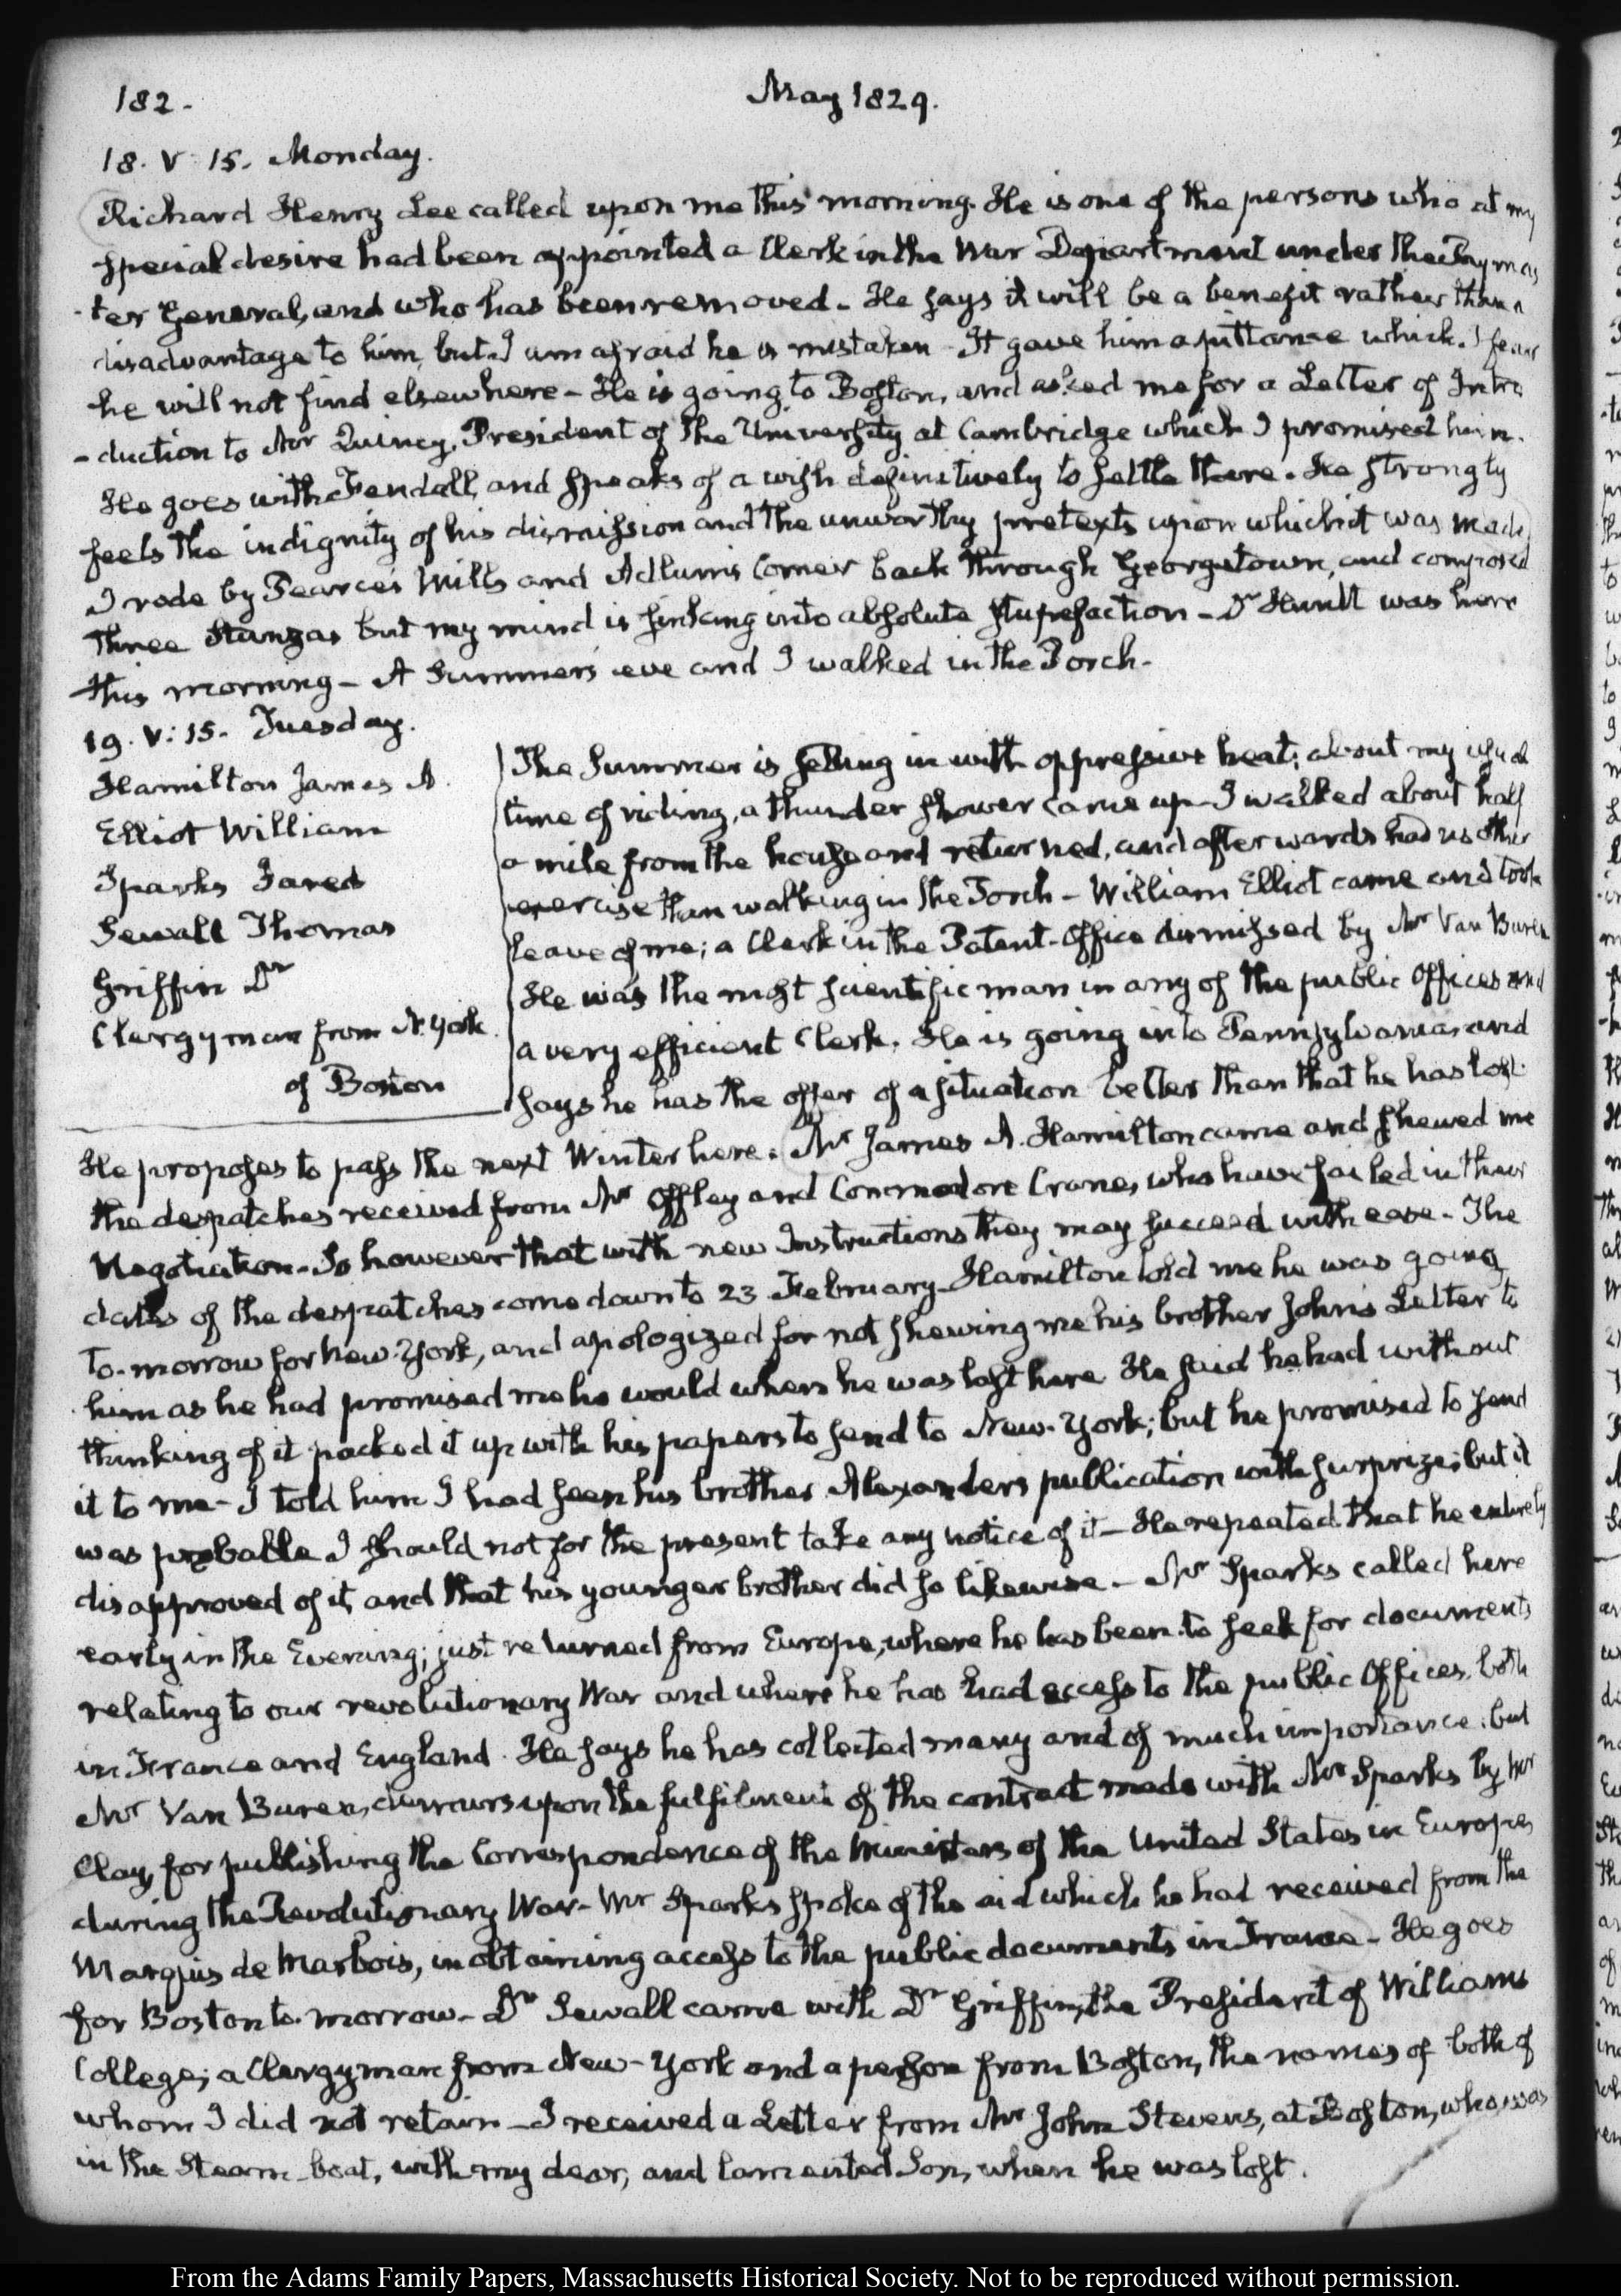 182.
May 1829.
18. V: 15. Monday.
Richard Henry Lee called upon me this morning. He is one of the persons who at my
special desire had been appointed a Clerk in the War Department under the Paymas
-ter General, and who has been removed. He says it will be a benefit rather than a
disadvantage to him, but I am afraid he is mistaken. It gave him a pittance which I fear
he will not find elsewhere - He is going to Boston, and asked me for a Letter of Intro
-duction to Mr Quincy, President of the University at Cambridge which I promised him.
He goes with Fendall, and speaks of a wish definitively to settle there. He strongly
feels the indignity of his dismission and the unworthy pretexts upon which it was made
I rode by Pearce's Mills and Adlum's Corner back through Georgetown, and composed
three Stanzas but my mind is sinking into absolute stupefaction - Dr Huntt was here
this morning - A Summer's eve and I walked in the Porch.
19. V: 15. Tuesday.
Hamilton James A.
Elliot William
Sparks Jared
Sewall Thomas
Griffin Dr
Clergyman from N. York
of Boston
The Summer is setting in with oppressive heat; about my usual
time of riding, a thunder shower came up - I walked about half
a mile from the house and returned, and afterwards had no other
exercise than walking in the Porch - William Elliot came and took
leave of me; a Clerk in the Patent-Office dismissed by Mr Van Buren
He was the most scientific man in any of the public Offices and
a very efficient Clerk. He is going into Pennsylvania and
says he has the offer of a situation better than that he has lost.
He proposes to pass the next Winter here. Mr James A. Hamilton came and shewed me
the despatches received from Mr Offley and Commodore Crane, who have failed in their
Negotiation - So however that with new Instructions they may succeed with ease - The
dates of the despatches come down to 23 February - Hamilton told me he was going
to-morrow for New-York, and apologized for not shewing me his brother John's Letter to
him as he had promised me he would when he was last here. He said he had without
thinking of it packed it up with his papers to send to New-York; but he promised to send
it to me - I told him I had seen his brother Alexander's publication with surprize; but it
was probable I should not for the present take any notice of it - He repeated that he entirely
disapproved of it, and that his younger brother did so likewise. - Mr Sparks called here
early in the Evening; just returned from Europe, where he has been to seek for documents
relating to our revolutionary War and where he has had access to the public Offices, both
in France and England. He says he has collected many and of much importance; but
Mr Van Buren, demurs upon the fulfilment of the contract made with Mr Sparks by Mr
Clay, for publishing the Correspondence of the Ministers of the United States in Europe,
during the Revolutionary War - Mr Sparks spoke of the aid which he had received from the
Marquis de Marbois, in obtaining access to the public documents in France - He goes
for Boston to-morrow - Dr Sewall came with Dr Griffin, the President of Williams
College; a Clergyman from New-York and a person from Boston, the names of both of
whom I did not retain - I received a Letter from Mr John Stevens, at Boston, who was
in the Steam-boat, with my dear, and lamented Son, when he was lost.
From the Adams Family Papers, Massachusetts Historical Society. Not to be reproduced without permission.